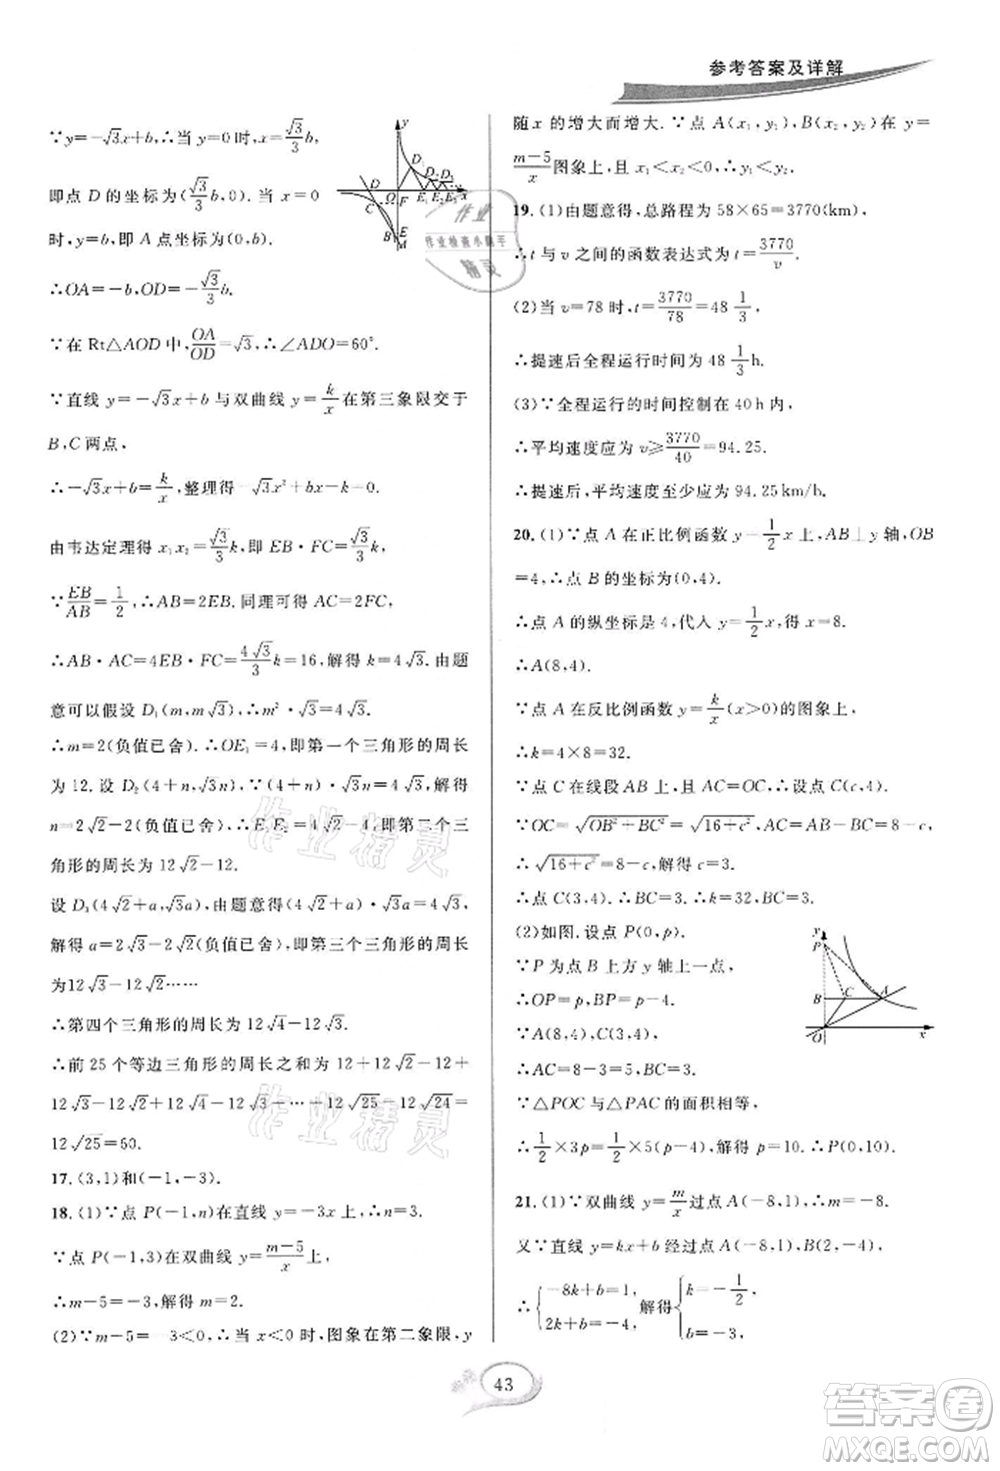 参考答案及详解
∵y=-√3x+b,∴当 y=0 时,x=√3/3 b,
即点 D 的坐标为(√3/3 b,0). 当 x=0
时,y=b,即 A 点坐标为(0,b),
∴OA=-b,OD=-√3/3 b.
∵在 Rt△AOD 中,OA/OD=√3,∴∠ADO=60°.
∵直线 y=-√3x+b 与双曲线 y=k/x 在第三象限交于
B,C 两点,
∴-√3x+b=k/x,整理得-√3x²+bx-k=0.
由韦达定理得 x₁x₂=√3/3 k,即 EB·FC=√3/3 k,
∵EB/AB=1/2,∴AB=2EB.同理可得 AC=2FC,
∴AB·AC=4EB·FC=4√3/3 k=16,解得 k=4√3.由题
意可以假设 D₁(m,m√3),∴m²·√3=4√3.
∴m=2(负值已舍).∴OE₁=4,即第一个三角形的周长
为 12.设 D₂(4+n,√3n),∵(4+n)·√3n=4√3,解得
n=2√2-2(负值已舍),∴E₁E₂=4√2-4,即第二个三
角形的周长为 12√2-12.
设 D₃(4√2+a,√3a),由题意得(4√2+a)·√3a=4√3,
解得 a=2√3-2√2(负值已舍),即第三个三角形的周长
为12√3-12√2……
∴第四个三角形的周长为 12√4-12√3.
∴前 25 个等边三角形的周长之和为 12+12√2-12+
12√3-12√2+12√4-12√3+…+12√25-12√24=
12√25=60.
17.(3,1)和(-1,-3).
18.(1)∵点 P(-1,n)在直线 y=-3x 上,∴n=3.
∵点 P(-1,3)在双曲线 y=m-5/x 上,
∴m-5=-3,解得 m=2.
(2)∵m-5=-3<0,∴当 x<0 时,图象在第二象限,y
随 x 的增大而增大.∵点 A(x₁,y₁),B(x₂,y₂)在 y=
m-5/x 图象上,且 x₁<x₂<0,∴y₁<y₂.
19.(1)由题意得,总路程为 58×65=3770(km),
∴t 与 v 之间的函数表达式为 t=3770/v.
(2)当 v=78 时,t=3770/78=48 1/3.
∴提速后全程运行时间为 48 1/3 h.
(3)∵全程运行的时间控制在 40 h 内,
∴平均速度应为 v≥3770/40=94.25.
∴提速后,平均速度至少应为 94.25 km/h.
20.(1)∵点 A 在正比例函数 y=1/2 x 上,AB⊥y 轴,OB
=4,∴点 B 的坐标为(0,4).
∴点 A 的纵坐标是 4,代入 y=1/2 x,得 x=8.
∴A(8,4).
∵点 A 在反比例函数 y=k/x(x>0)的图象上,
∴k=4×8=32.
∵点 C 在线段 AB 上,且 AC=OC,∴设点 C(c,4).
∵OC=√OB²+BC²=√16+c²,AC=AB-BC=8-c,
∴√16+c²=8-c,解得 c=3.
∴点 C(3,4).∴BC=3.∴k=32,BC=3.
(2)如图.设点 P(0,p).
∵P 为点 B 上方 y 轴上一点,
∴OP=p,BP=p-4.
∵A(8,4),C(3,4),
∴AC=8-3=5.
∵△POC 与△PAC 的面积相等,
∴1/2×3p=1/2×5(p-4),解得 p=10.∴P(0,10).
21.(1)∵双曲线 y=m/x 过点 A(-8,1),∴m=-8.
又∵直线 y=kx+b 经过点 A(-8,1),B(2,-4),
∴{-8k+b=1, 2k+b=-4, 解得{k=-1/2, b=-3.
43
答案圈
MXQE.COM